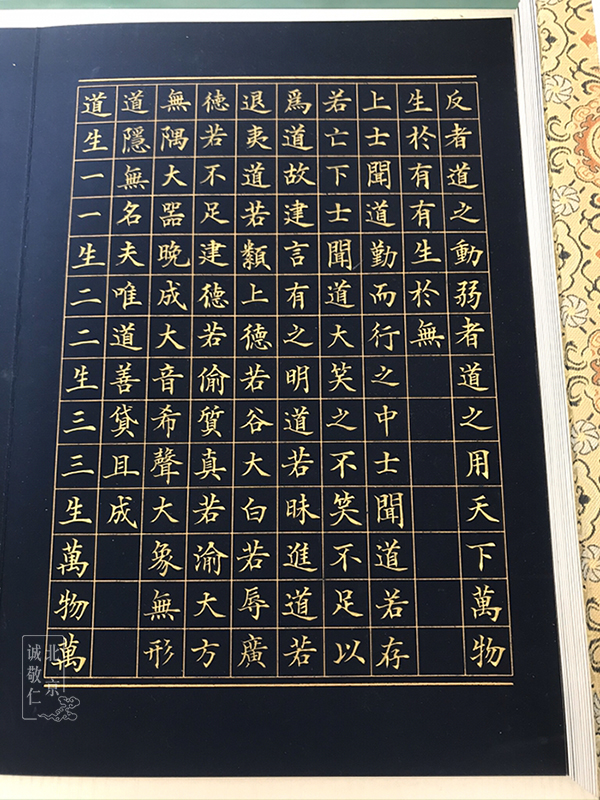 反者道之動弱者道之用天下萬物
生於有有生於無
上士聞道勤而行之中士聞道若存
若亡下士聞道大笑之不笑不足以
爲道故建言有之明道若昧進道若
退夷道若纇上德若谷大白若辱廣
德若不足建德若偷質真若渝大方
無隅大器晚成大音希聲大象無形
道隱無名夫唯道善貸且成
道生一一生二二生三三生萬物萬
北京
诚敬仁